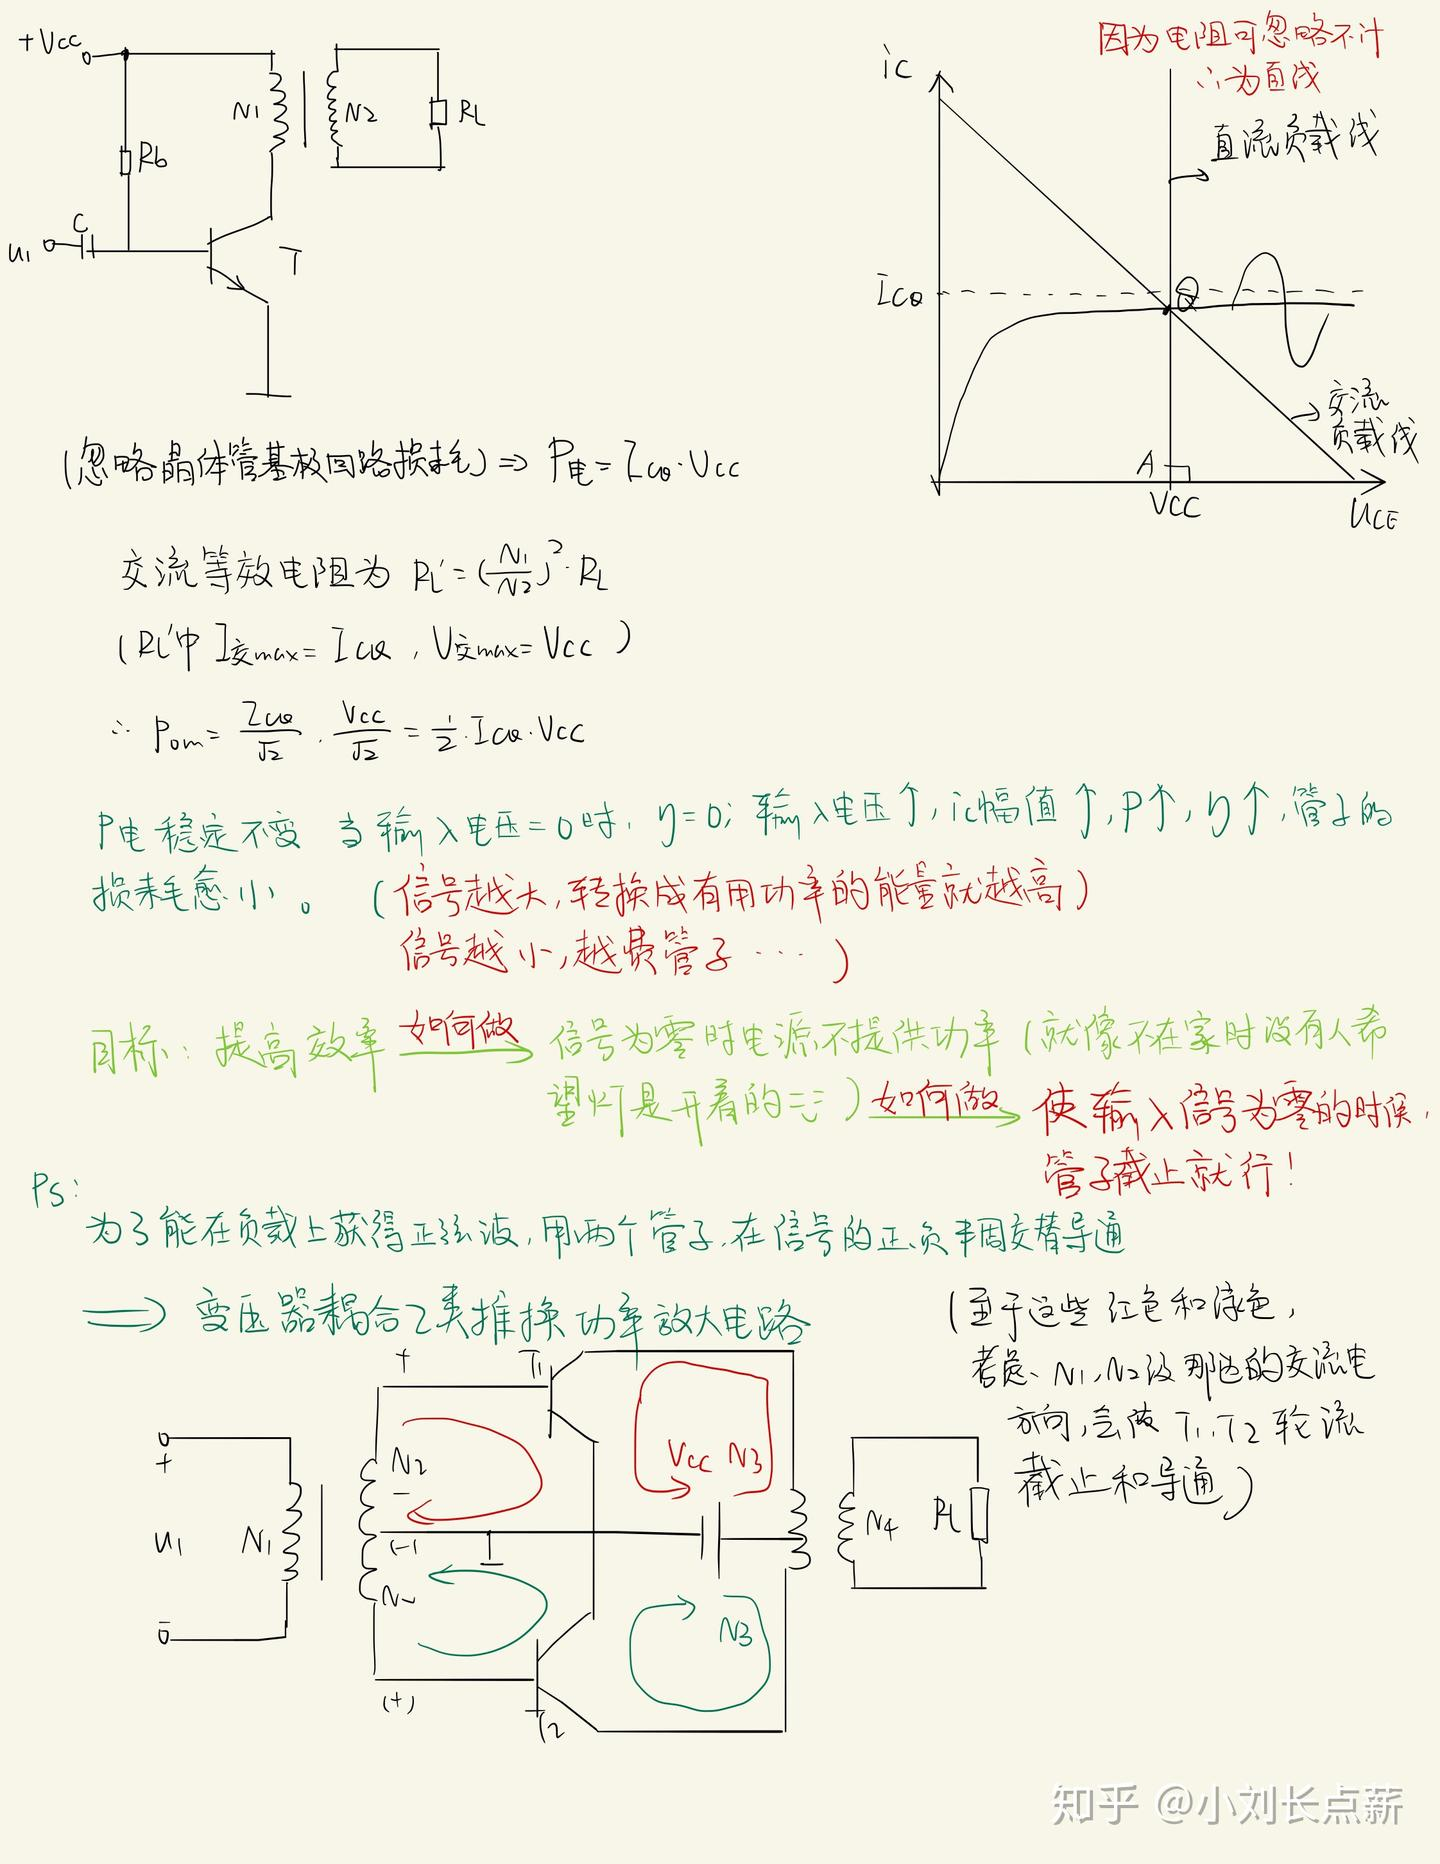 +Vcc
N1
N2
RL
Rb
C
u1
T
因为电阻可忽略不计
∴为直线
ic
直流负载线
ICQ
Q
交流
负载线
A
VCC
UCE
(忽略晶体管基极回路损耗)⇒ P电=ICQ·VCC
交流等效电阻为 RL'=(N1/N2)²·RL
(RL'中 I交max=ICQ,V交max=VCC)
∴ Pom=ICQ/√2·VCC/√2=1/2·ICQ·VCC
P电稳定不变 当输入电压=0时,η=0;输入电压↑,ic幅值↑,P↑,η↑,管子的
损耗愈小。(信号越大,转换成有用功率的能量就越高)
信号越小,越费管子···)
目标:提高效率 如何做 信号为零时电源不提供功率(就像不在家时没有人希
望灯是开着的) 如何做 使输入信号为零的时候,
管子截止就行!
PS:
为了能在负载上获得正弦波,用两个管子,在信号的正负半周交替导通
⇒ 变压器耦合乙类推换功率放大电路
(至于这些红色和绿色,
考虑N1,N2没那边的交流电
方向,会使T1,T2轮流
截止和导通)
+
T1
+
N2
−
Vcc N3
u1
N1
(−)
N4
RL
N2
N3
−
(+)
T2
知乎 @小刘长点薪